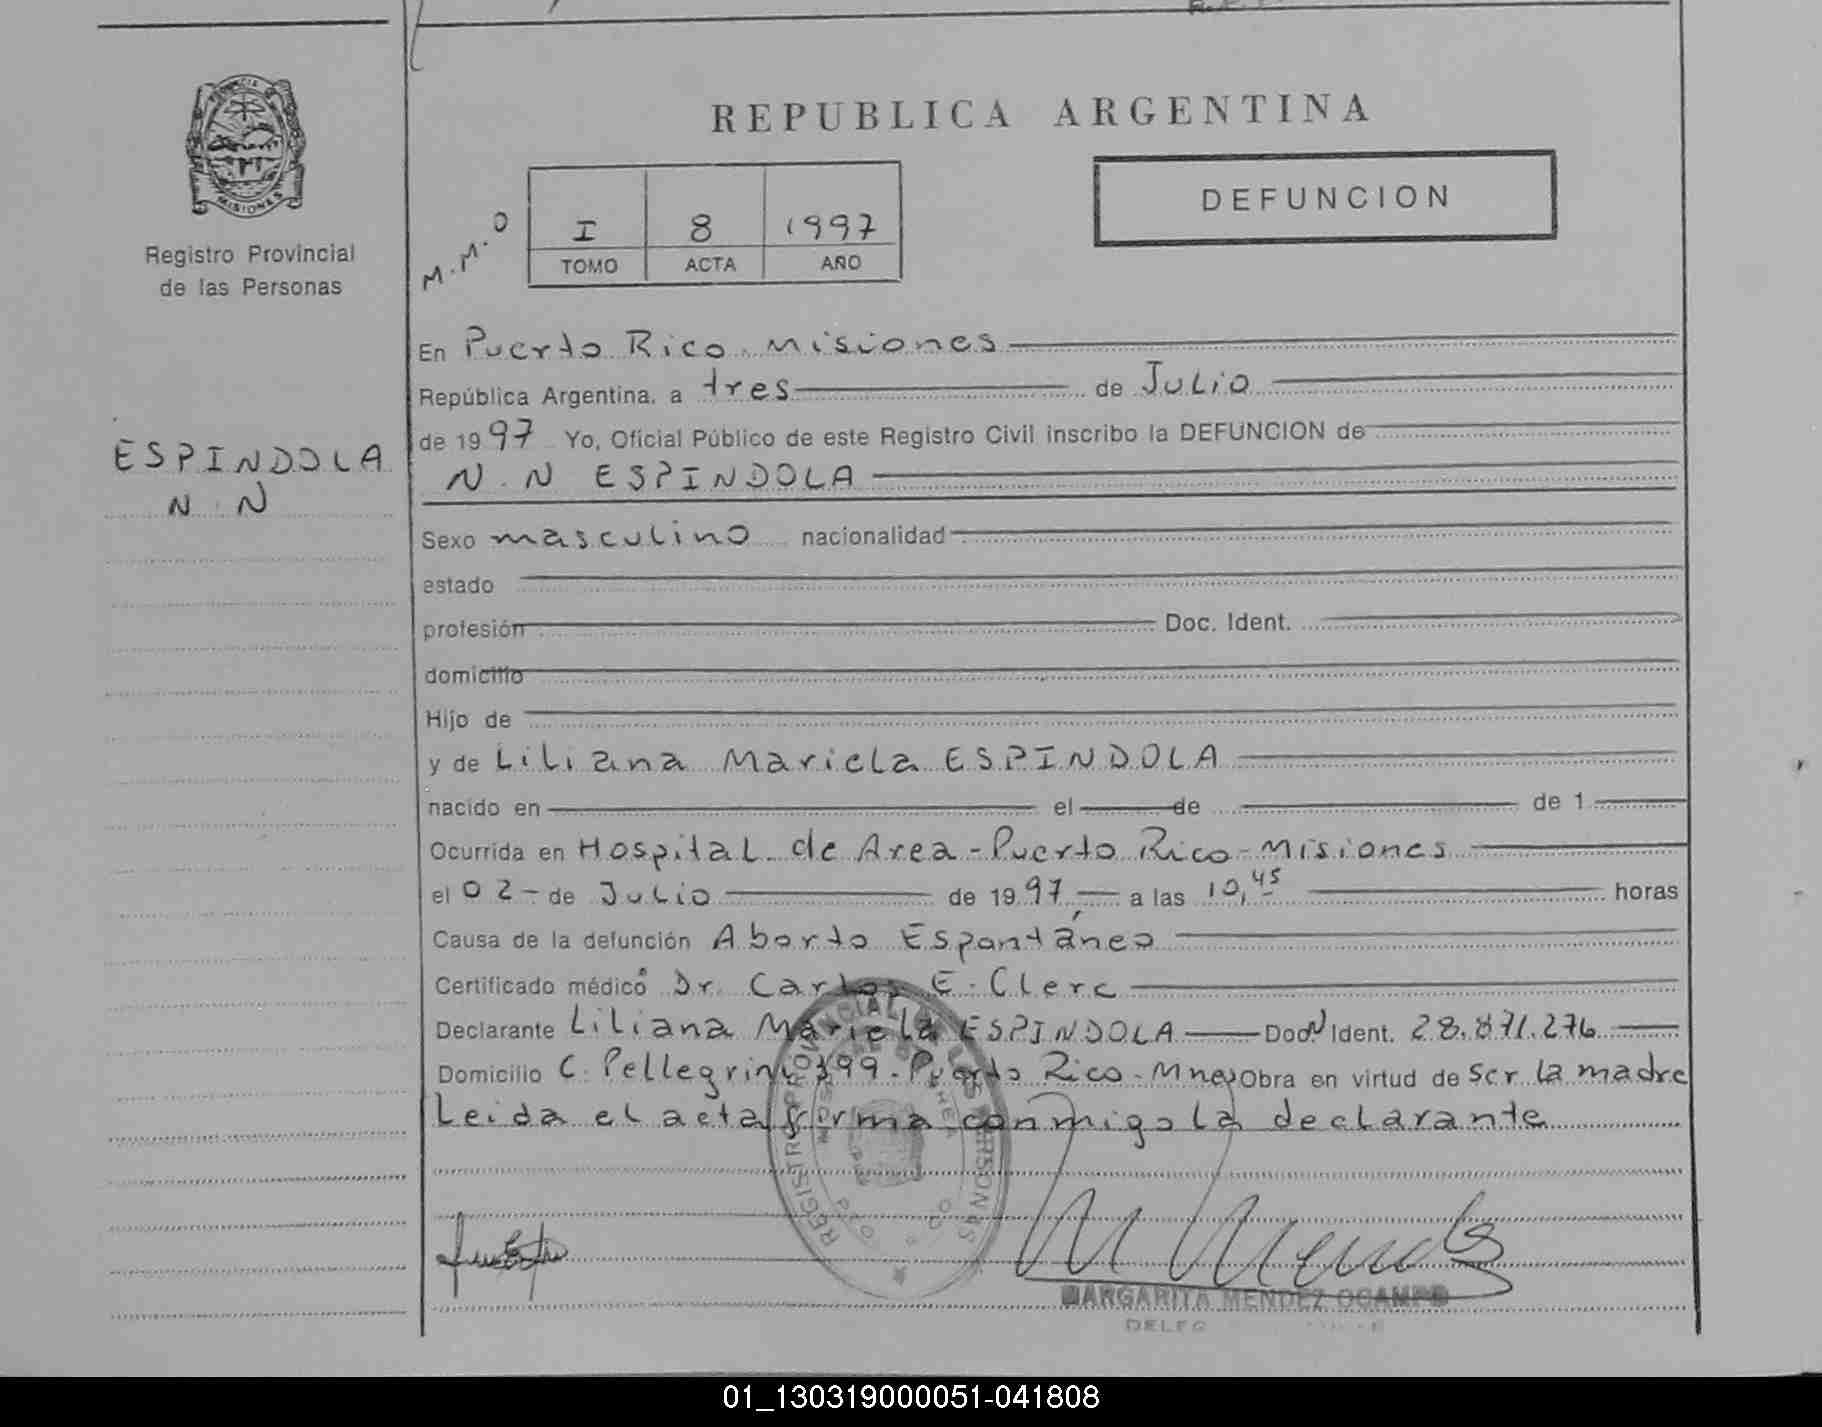 PROVINCIA
MISIONES
Registro Provincial
de las Personas
REPUBLICA ARGENTINA
DEFUNCION
M.M.O
I 8 1997
TOMO ACTA AÑO
ESPINDOLA
N.N
En Puerto Rico. Misiones
República Argentina, a tres de Julio
de 1997 Yo, Oficial Público de este Registro Civil inscribo la DEFUNCION de
N.N ESPINDOLA
Sexo masculino nacionalidad
estado
profesión Doc. Ident.
domicilio
Hijo de
y de Liliana Mariela ESPINDOLA
nacido en el de de 1
Ocurrida en Hospital de Area - Puerto Rico - Misiones
el 02 - de Julio de 1997 a las 10,45 horas
Causa de la defunción Aborto Espontáneo
Certificado médico Dr. Carlos E. Clerc
Declarante Liliana Mariela ESPINDOLA Doc. N Ident. 28.871.276
Domicilio C. Pellegrini 399 - Puerto Rico - Mnes Obra en virtud de ser la madre
Leida el acta firma conmigo la declarante
REGISTRO PROVINCIAL DE LAS PERSONAS
MARGARITA MENDEZ OCAMPO
01_130319000051-041808